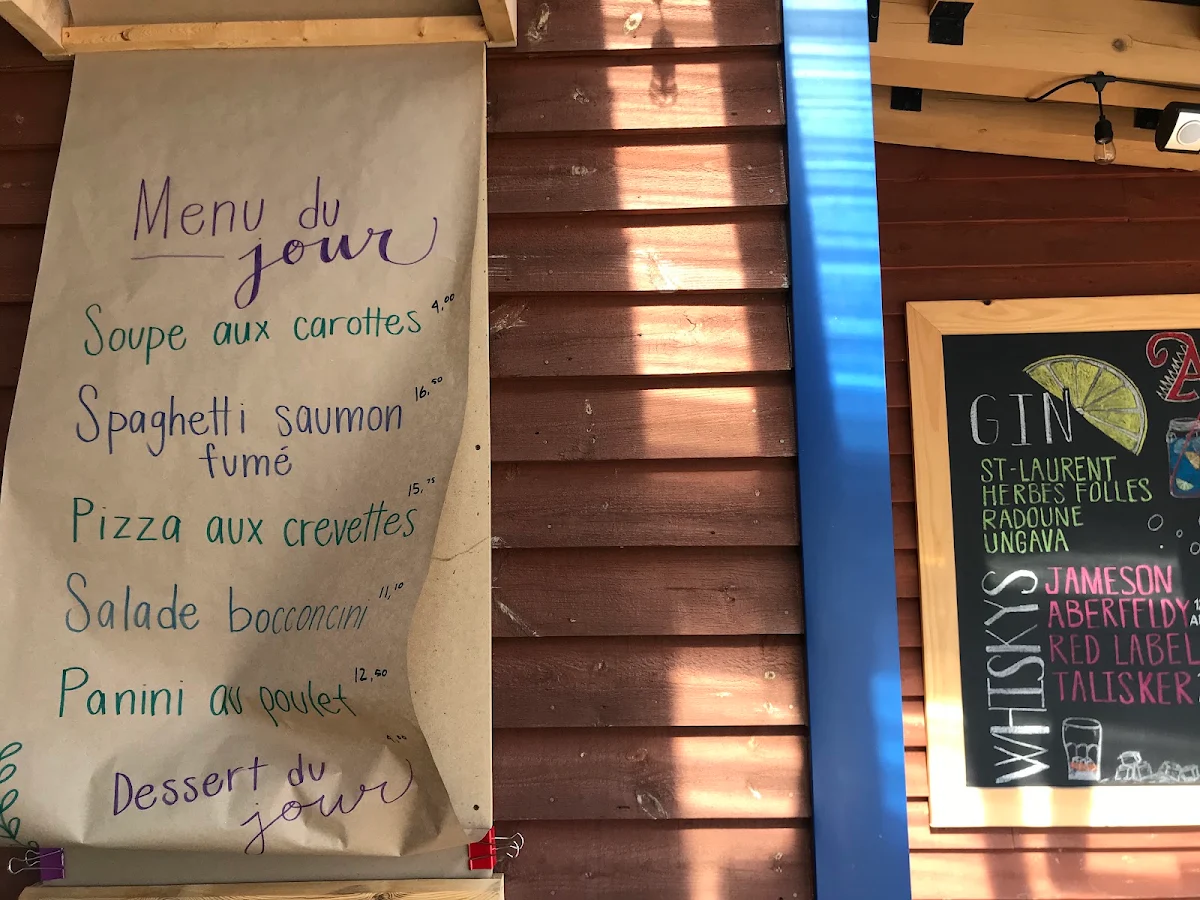 Menu du
jour
Soupe aux carottes 4,00
Spaghetti saumon 16,50
fumé
Pizza aux crevettes 15,75
Salade bocconcini 11,10
Panini au poulet 12,50
Dessert du
jour
GIN
ST-LAURENT
HERBES FOLLES
RADOUNE
UNGAVA
WHISKYS
JAMESON
ABERFELDY
RED LABEL
TALISKER